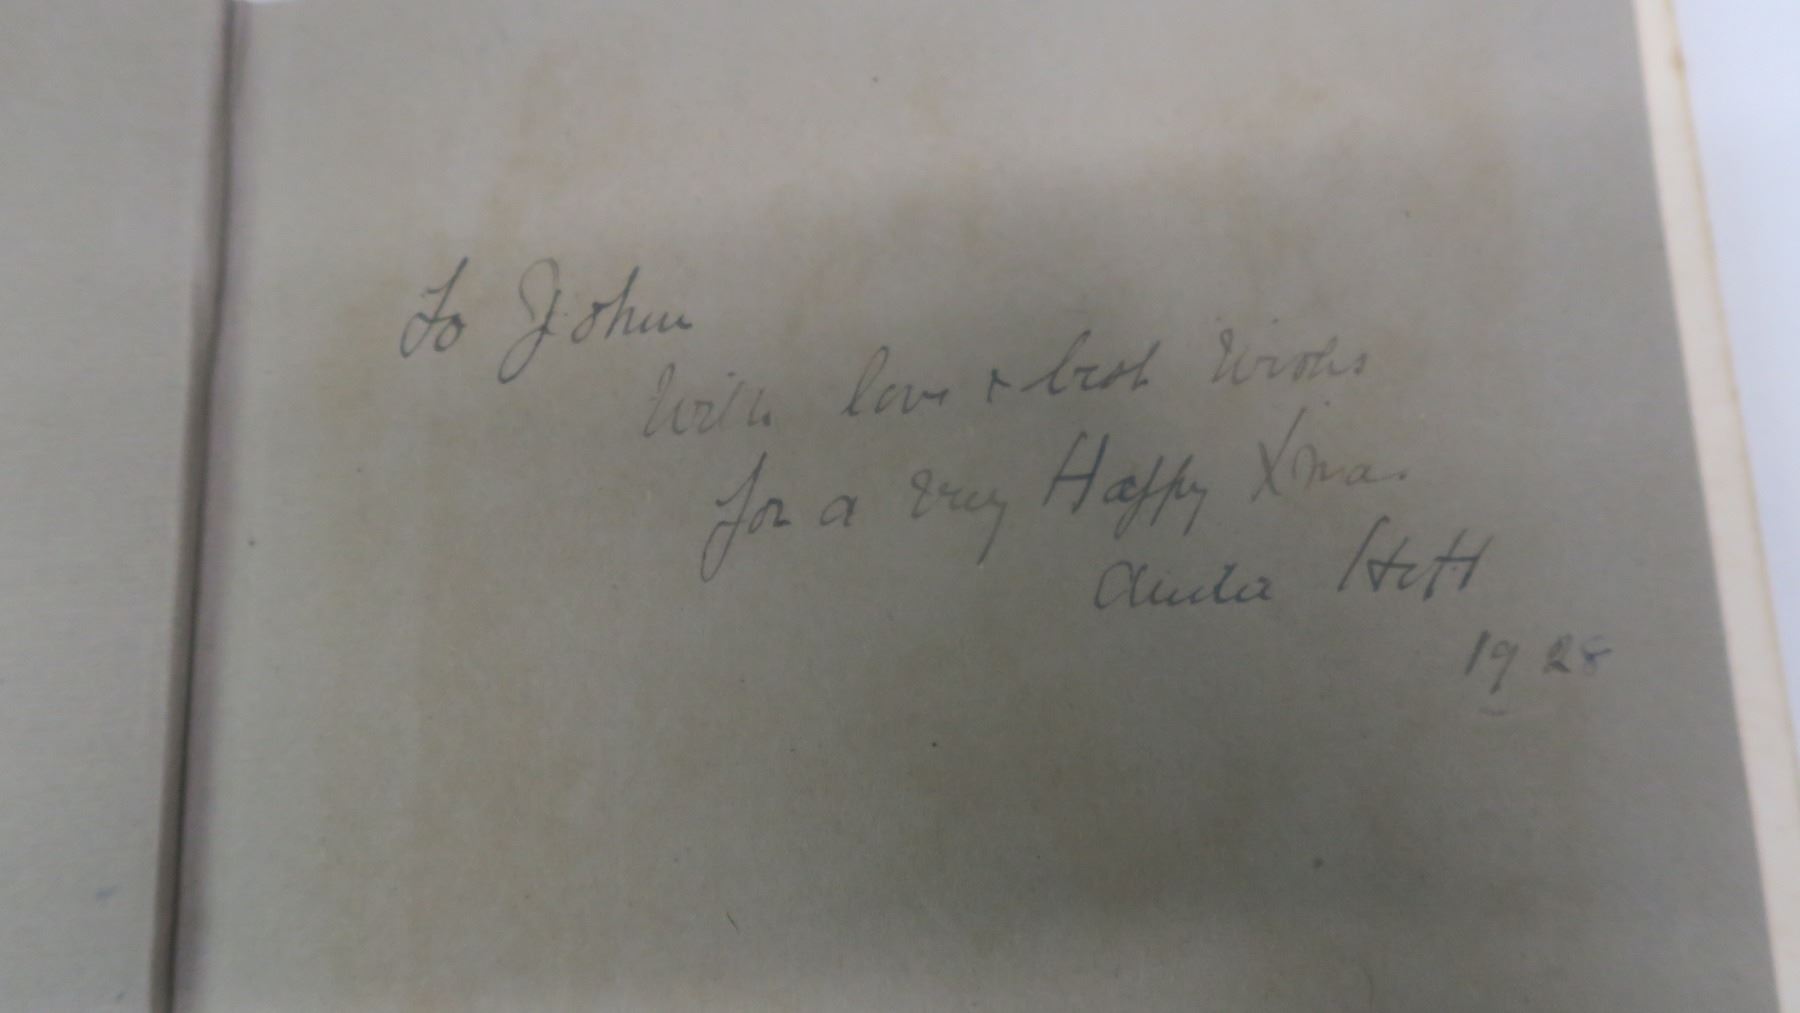 To John
With love & best Wishes
for a very Happy Xmas.
1928